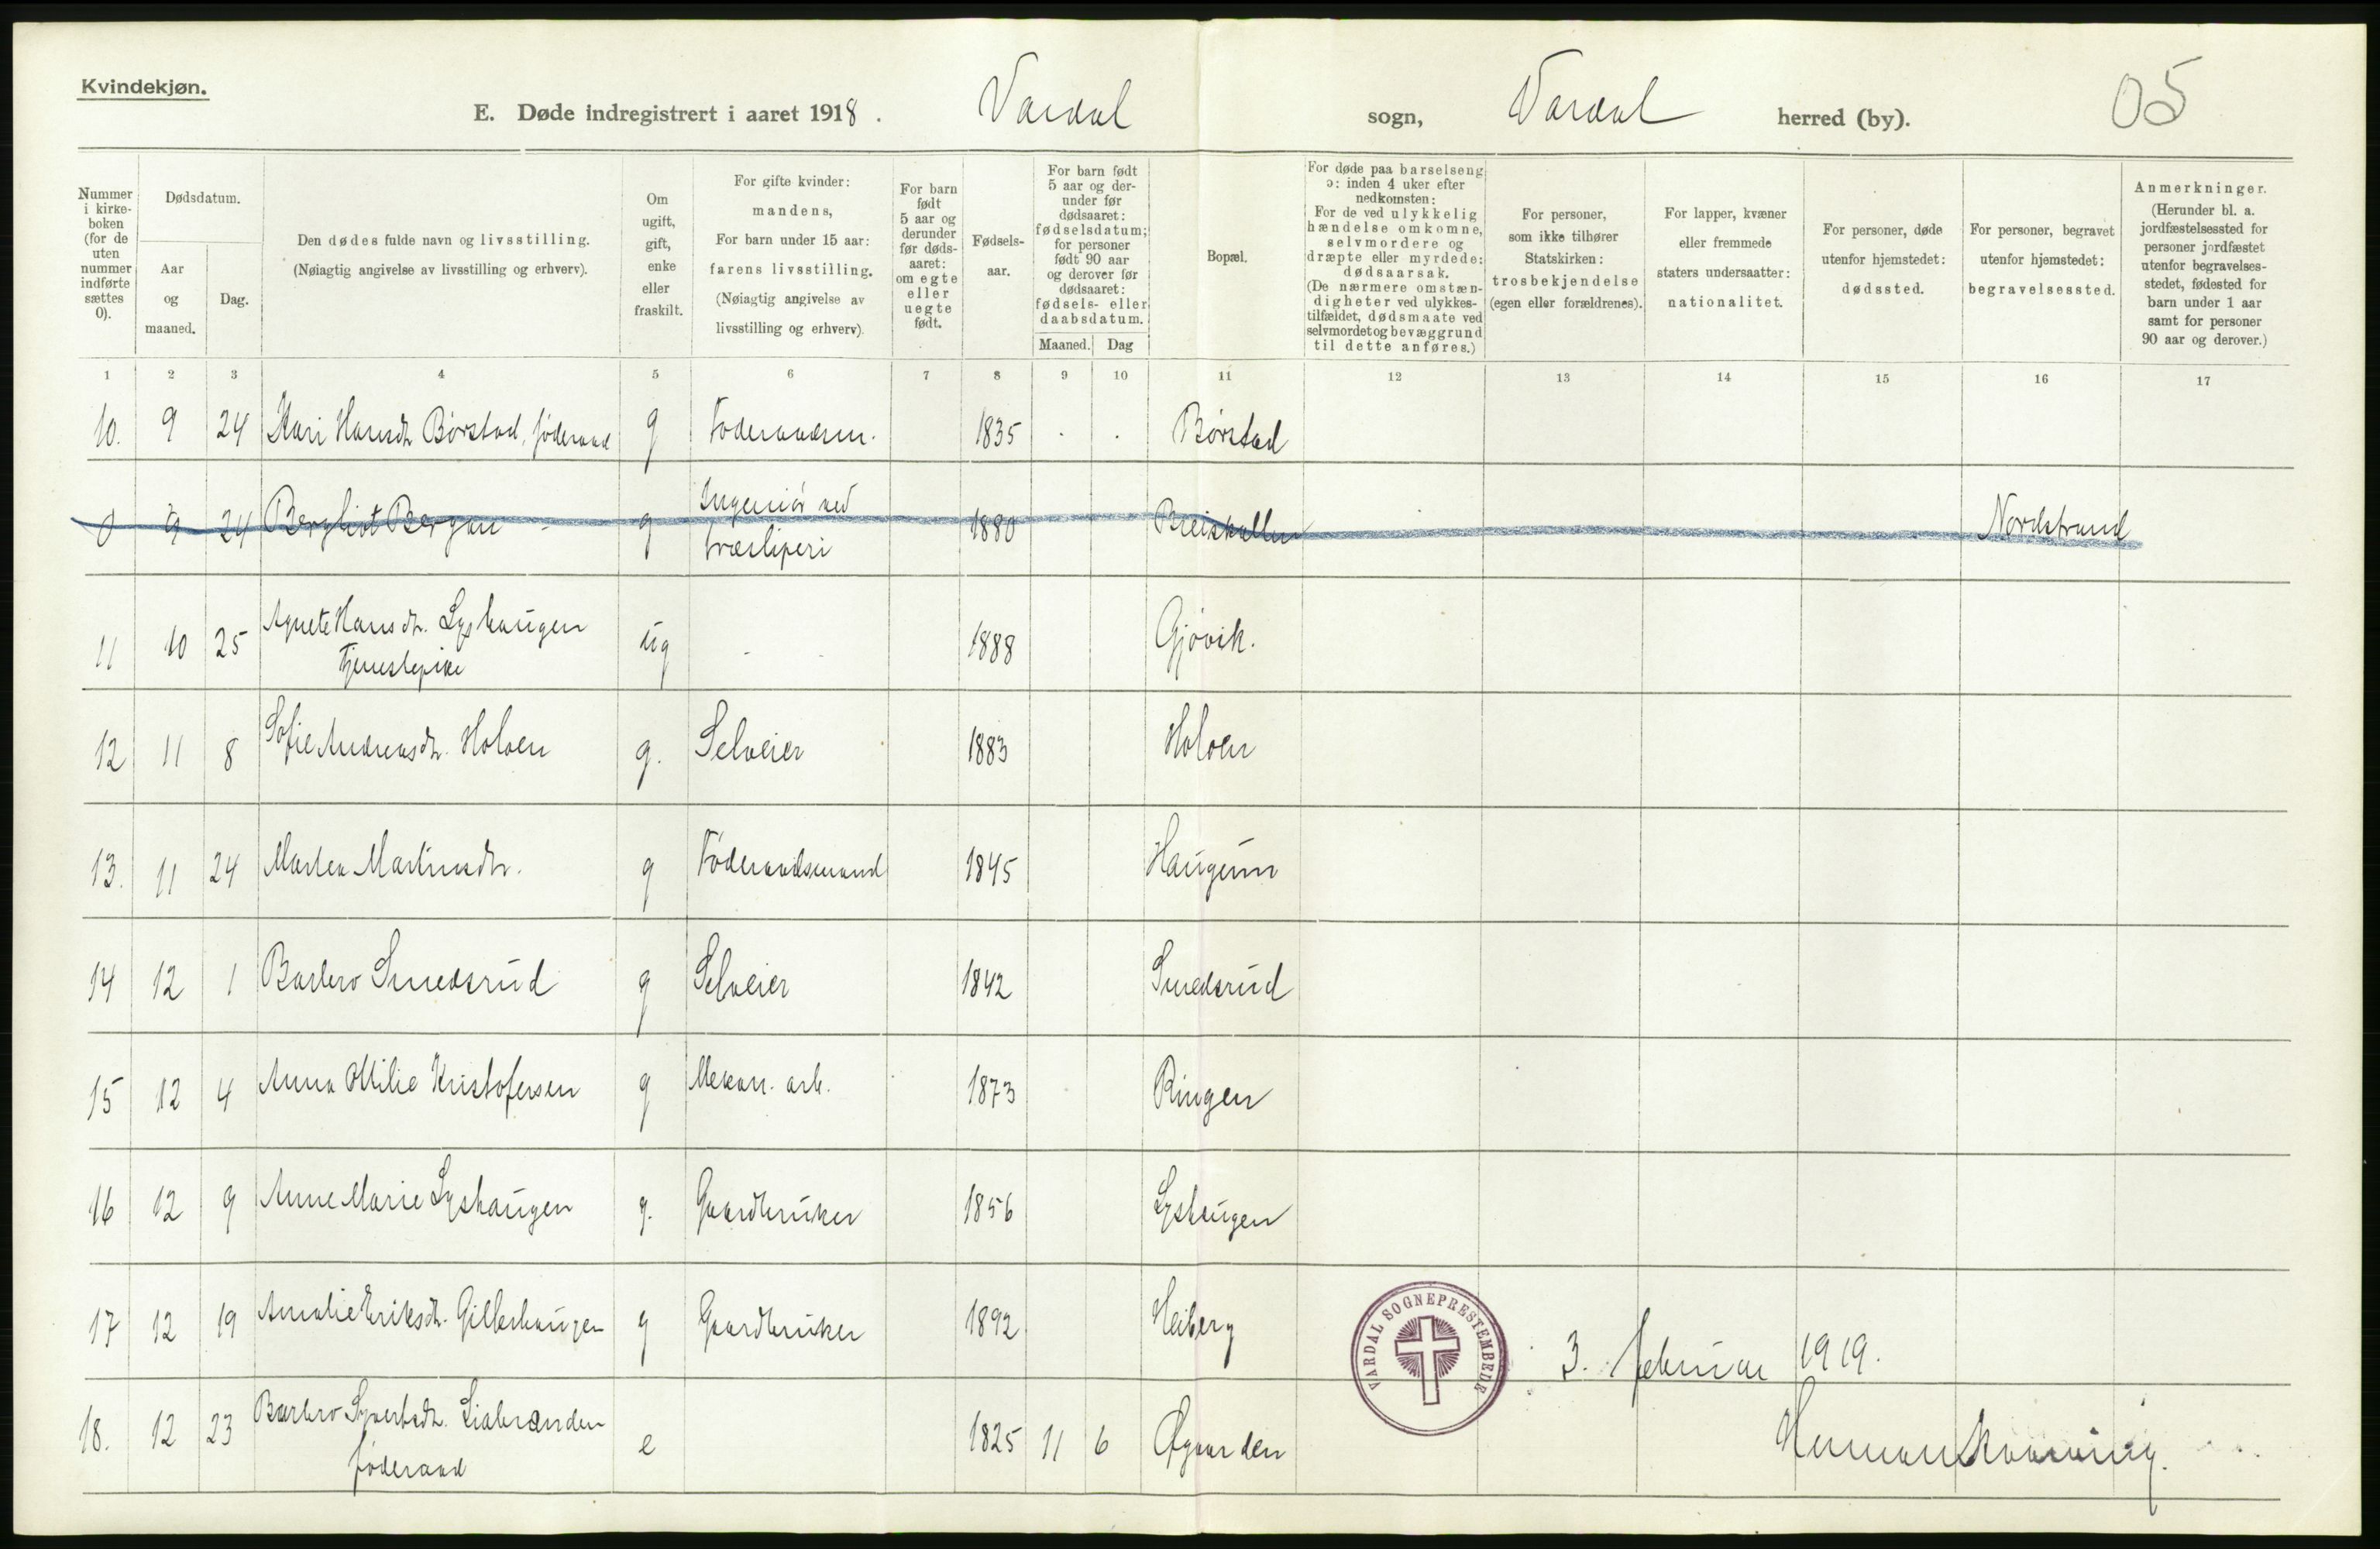 Kvindekjøn.
E. Døde indregistrert i aaret 1918. Vardal sogn, Vardal herred (by). 05
Nummer i kirke- boken (for de uten nummer indførte sættes 0).
Dødsdatum.
Aar og maaned.
Dag.
Den dødes fulde navn og livsstilling.
(Nøiagtig angivelse av livsstilling og erhverv).
Om ugift, gift, enke eller fraskilt.
For gifte kvinder: mandens,
For barn under 15 aar: farens livsstilling.
(Nøiagtig angivelse av livsstilling og erhverv).
For barn født 5 aar og derunder før døds- aaret: om egte eller uegte født.
Fødsels- aar.
For barn født 5 aar og der- under før dødsaaret: fødselsdatum; for personer født 90 aar og derover før dødsaaret: fødsels- eller daabsdatum.
Maaned. Dag
Bopæl.
For døde paa barselseng ɔ: inden 4 uker efter nedkomsten:
For de ved ulykkelig hændelse omkomne, selvmordere og dræpte eller myrdede: dødsaarsak.
(De nærmere omstæn- digheter ved ulykkes- tilfældet, dødsmaate ved selvmordet og bevæggrund til dette anføres.)
For personer, som ikke tilhører Statskirken: trosbekjendelse (egen eller forældrenes).
For lapper, kvæner eller fremmede staters undersaatter: nationalitet.
For personer, døde utenfor hjemstedet: dødssted.
For personer, begravet utenfor hjemstedet: begravelsessted.
Anmerkninger.
(Herunder bl. a. jordfæstelsessted for personer jordfæstet utenfor begravelses- stedet, fødested for barn under 1 aar samt for personer 90 aar og derover.)
1 2 3 4 5 6 7 8 9 10 11 12 13 14 15 16 17
10. 9 24 Kari Hansdtr Børstad, føderaad g Føderaadsm. 1835 . . Børstad
0 9 24 Bergliot Bergan - g Ingeniør ved træsliperi 1880 Breiskallen Nordstrand
11 10 25 Agnete Hansdtr. Lyshaugen
Tjenestepike ug - - 1888 Gjøvik.
12 11 8 Sofie Andreasdtr. Holoen g. Selveier 1883 Holoen
13. 11 24 Martea Martinsdtr. g Føderaadsmand 1845 Haugum
14 12 1 Barbro Smedsrud g Selveier 1842 Smedsrud
15 12 4 Anna Ottilie Kristofersen g Mekan. arb. 1873 Ringen
16 12 9 Anne Marie Lyshaugen g. Gaardbruker 1856 Lyshaugen
17 12 19 Amalie Eriksdtr. Gilberhaugen g Gaardbruker 1892 Heiberg
VARDAL SOGNEPRESTEMBEDE
3. februar 1919.
18. 12 23 Barbro Syvertsdtr. Liabrænden
føderaad e 1825 11 6 Øgaarden
Herman